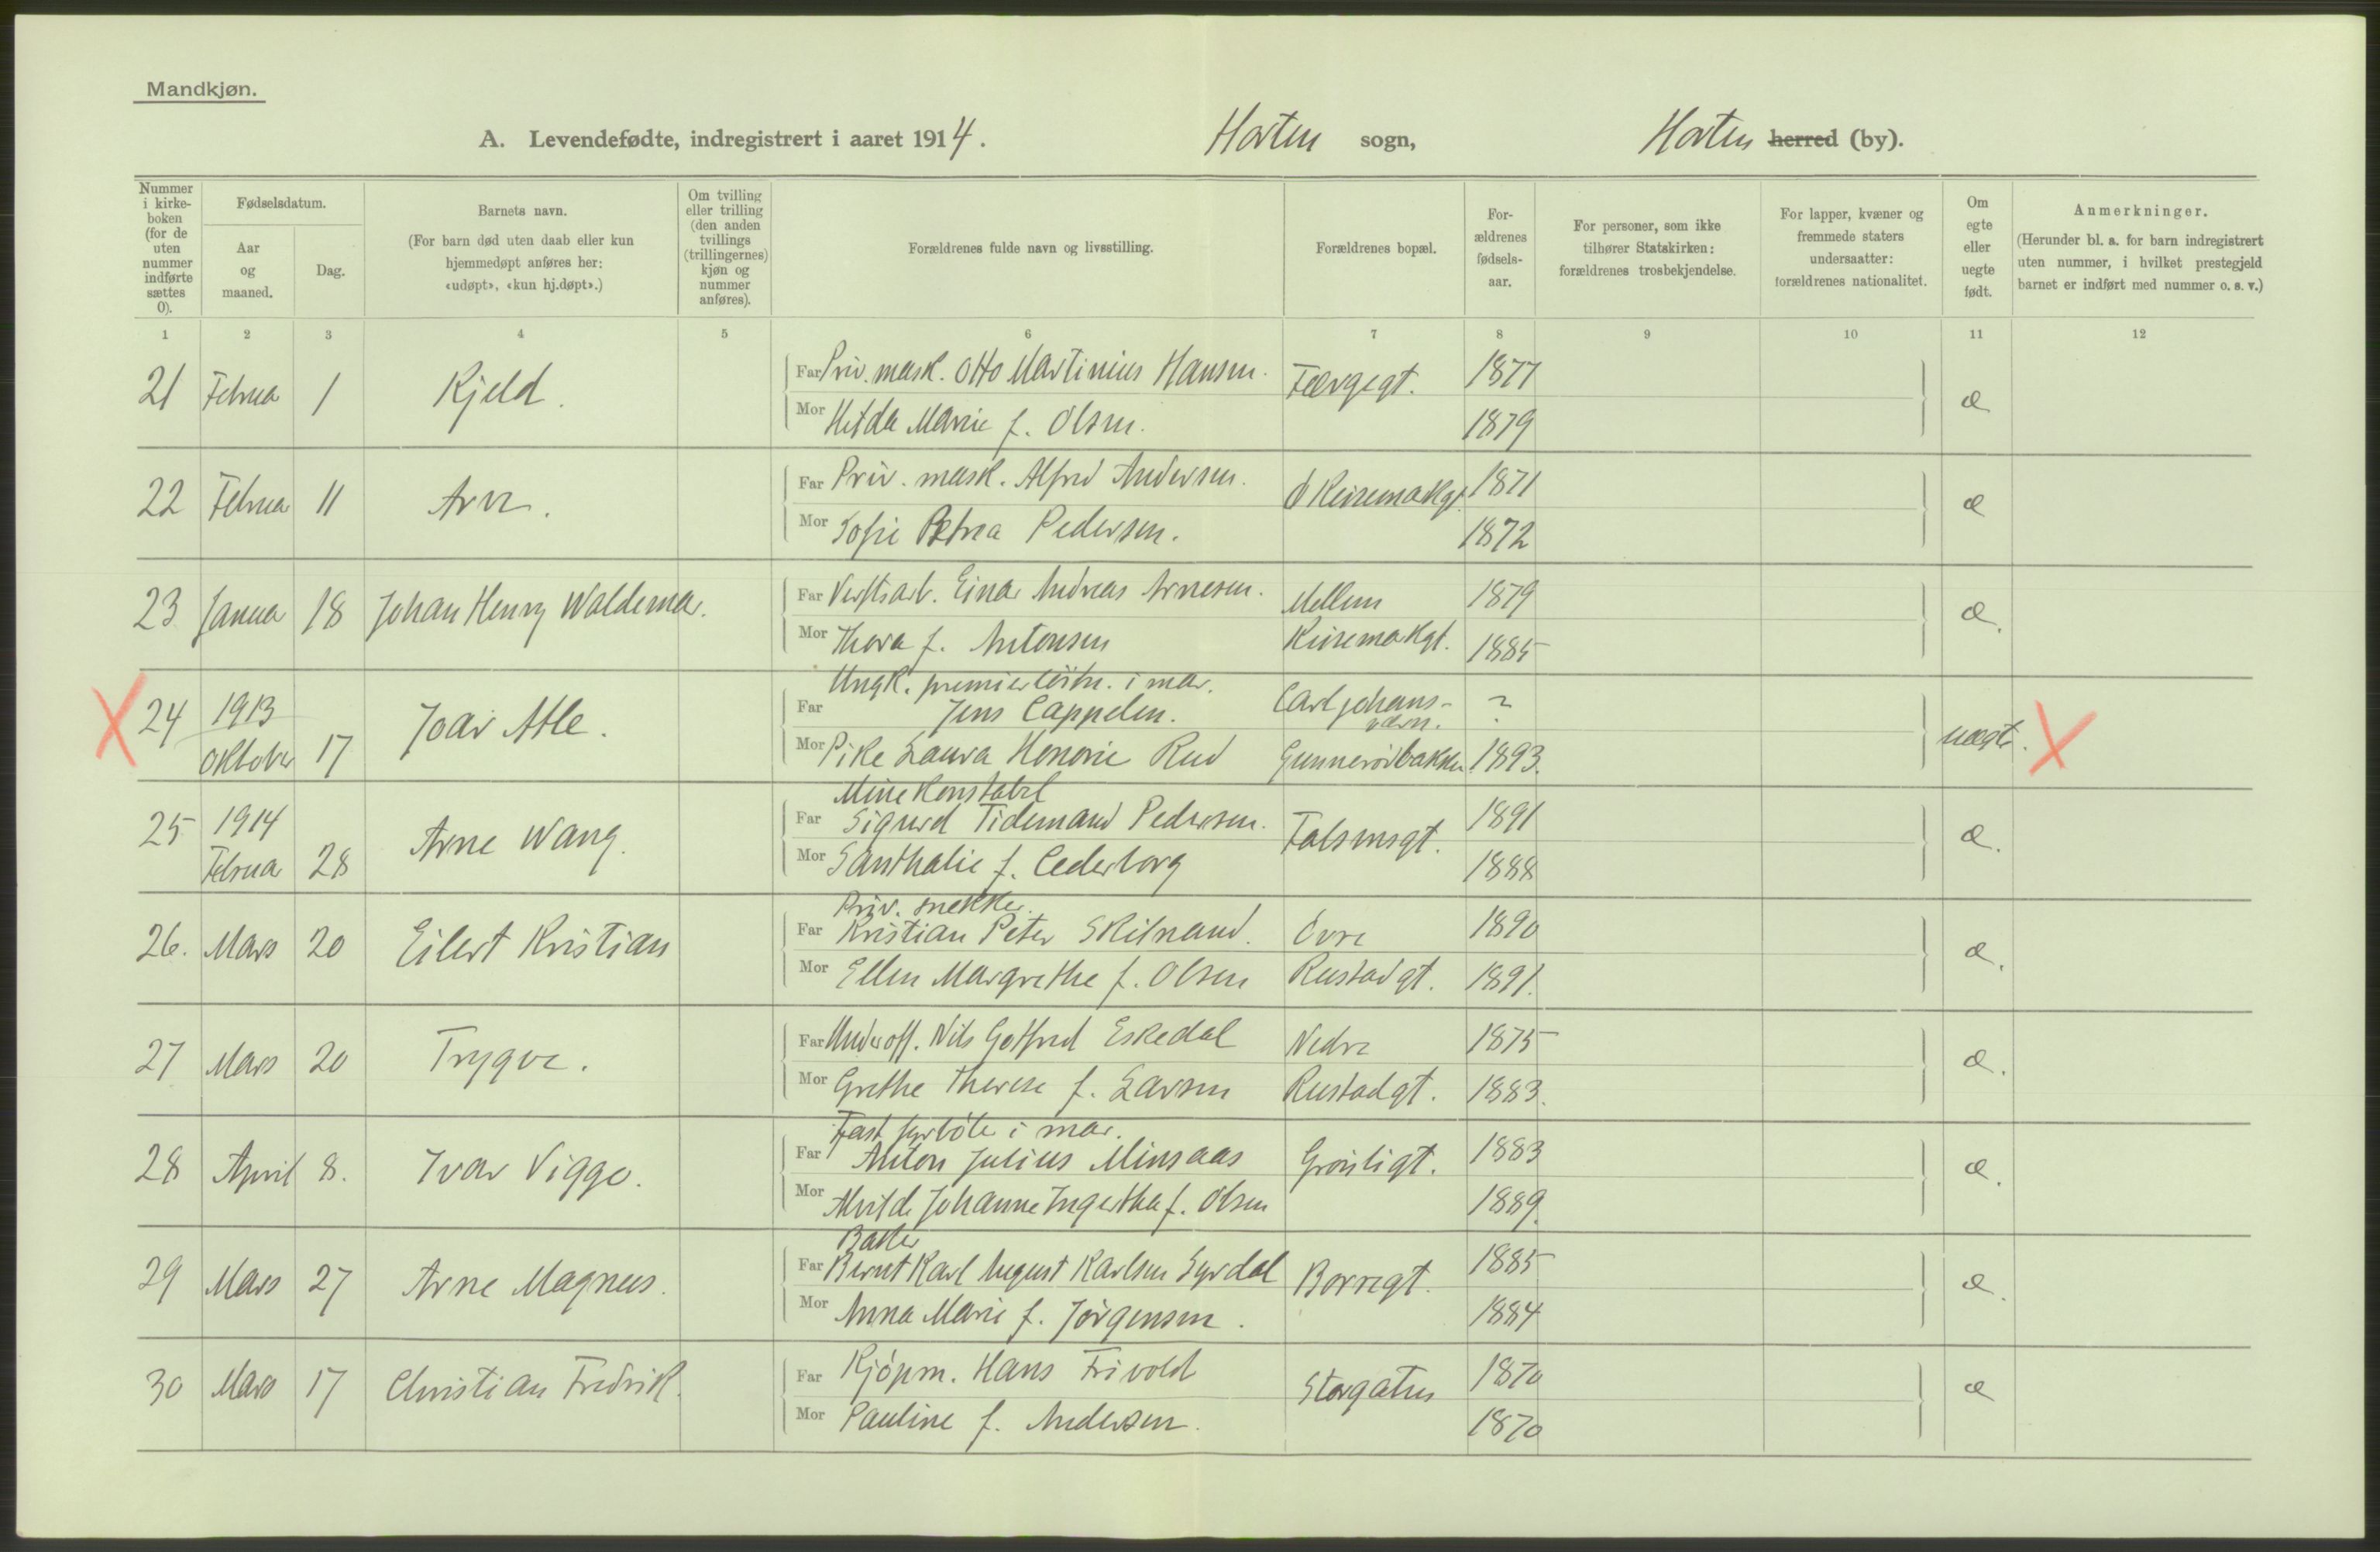 Mandkjøn.
A. Levendefødte, indregistrert i aaret 1914. Horten sogn, Horten herred (by).
Nummer i kirkeboken (for de uten nummer indførte sættes 0).
Fødselsdatum.
Aar og maaned.
Dag.
Barnets navn.
(For barn død uten daab eller kun hjemmedøpt anføres her: «udøpt», «kun hj.døpt».)
Om tvilling eller trilling (den anden tvillings (trillingernes) kjøn og nummer anføres).
Forældrenes fulde navn og livsstilling.
Forældrenes bopæl.
Forældrenes fødselsaar.
For personer, som ikke tilhører Statskirken: forældrenes trosbekjendelse.
For lapper, kvæner og fremmede staters undersaatter: forældrenes nationalitet.
Om egte eller uegte født.
Anmerkninger.
(Herunder bl. a. for barn indregistrert uten nummer, i hvilket prestegjeld barnet er indført med nummer o. s. v.)
1 2 3 4 5 6 7 8 9 10 11 12
21 Februar 1 Kjeld. Far Priv. mask. Otto Martinius Hansen. Færgegt. 1877 æ
Mor Hilda Marie f. Olsen. 1879
22 Februar 11 Arne. Far Priv. mask. Alfred Andersen. Ø Keisemakgt. 1871 æ
Mor Sofie Petrea Pedersen. 1872
23 Januar 18 Johan Henry Waldemar. Far Verftsarb. Einar Andreas Arnesen. Mellem 1879 æ.
Mor Thora f. Antonsen Keisemakgt. 1885
X 24 1913 Oktober 17 Joar Atle. Ungk. premierløitn. i mar.
Far Jens Cappelen. Carljohansværn. ? uegte. X
Mor Pike Laura Honorie Rud Gunnerödbakken 1893.
25 1914 Februar 28 Arne Wang. Minekonstabel
Far Sigurd Tidemand Pedersen. Falsensgt. 1891 æ.
Mor Santhalie f. Cederborg 1888
26. Mars 20 Eilert Kristian Priv. snekker.
Far Kristian Peter Skilnand. Övre 1890 æ.
Mor Ellen Margrethe f. Olsen Rustadgt. 1891.
27 Mars 20 Trygve. Far Underoff. Nils Gotfred Eskedal Nedre 1875 æ.
Mor Grethe Therese f. Larsen Rustadgt. 1883.
28 April 8. Ivar Viggo. Fast fyrböter i mar.
Far Anton Julius Minsaas Grönligt. 1883 æ.
Mor Alvilde Johanne Ingertha f. Olsen 1889.
29 Mars 27 Arne Magnus. Baker
Far Bernt Karl August Karlsen Syrdal Borregt. 1885 æ.
Mor Anna Marie f. Jörgensen. 1884
30 Mars 17 Christian Fredrik. Far Kjöpm. Hans Frivold Storgaten 1870 æ
Mor Pauline f. Andersen. 1870